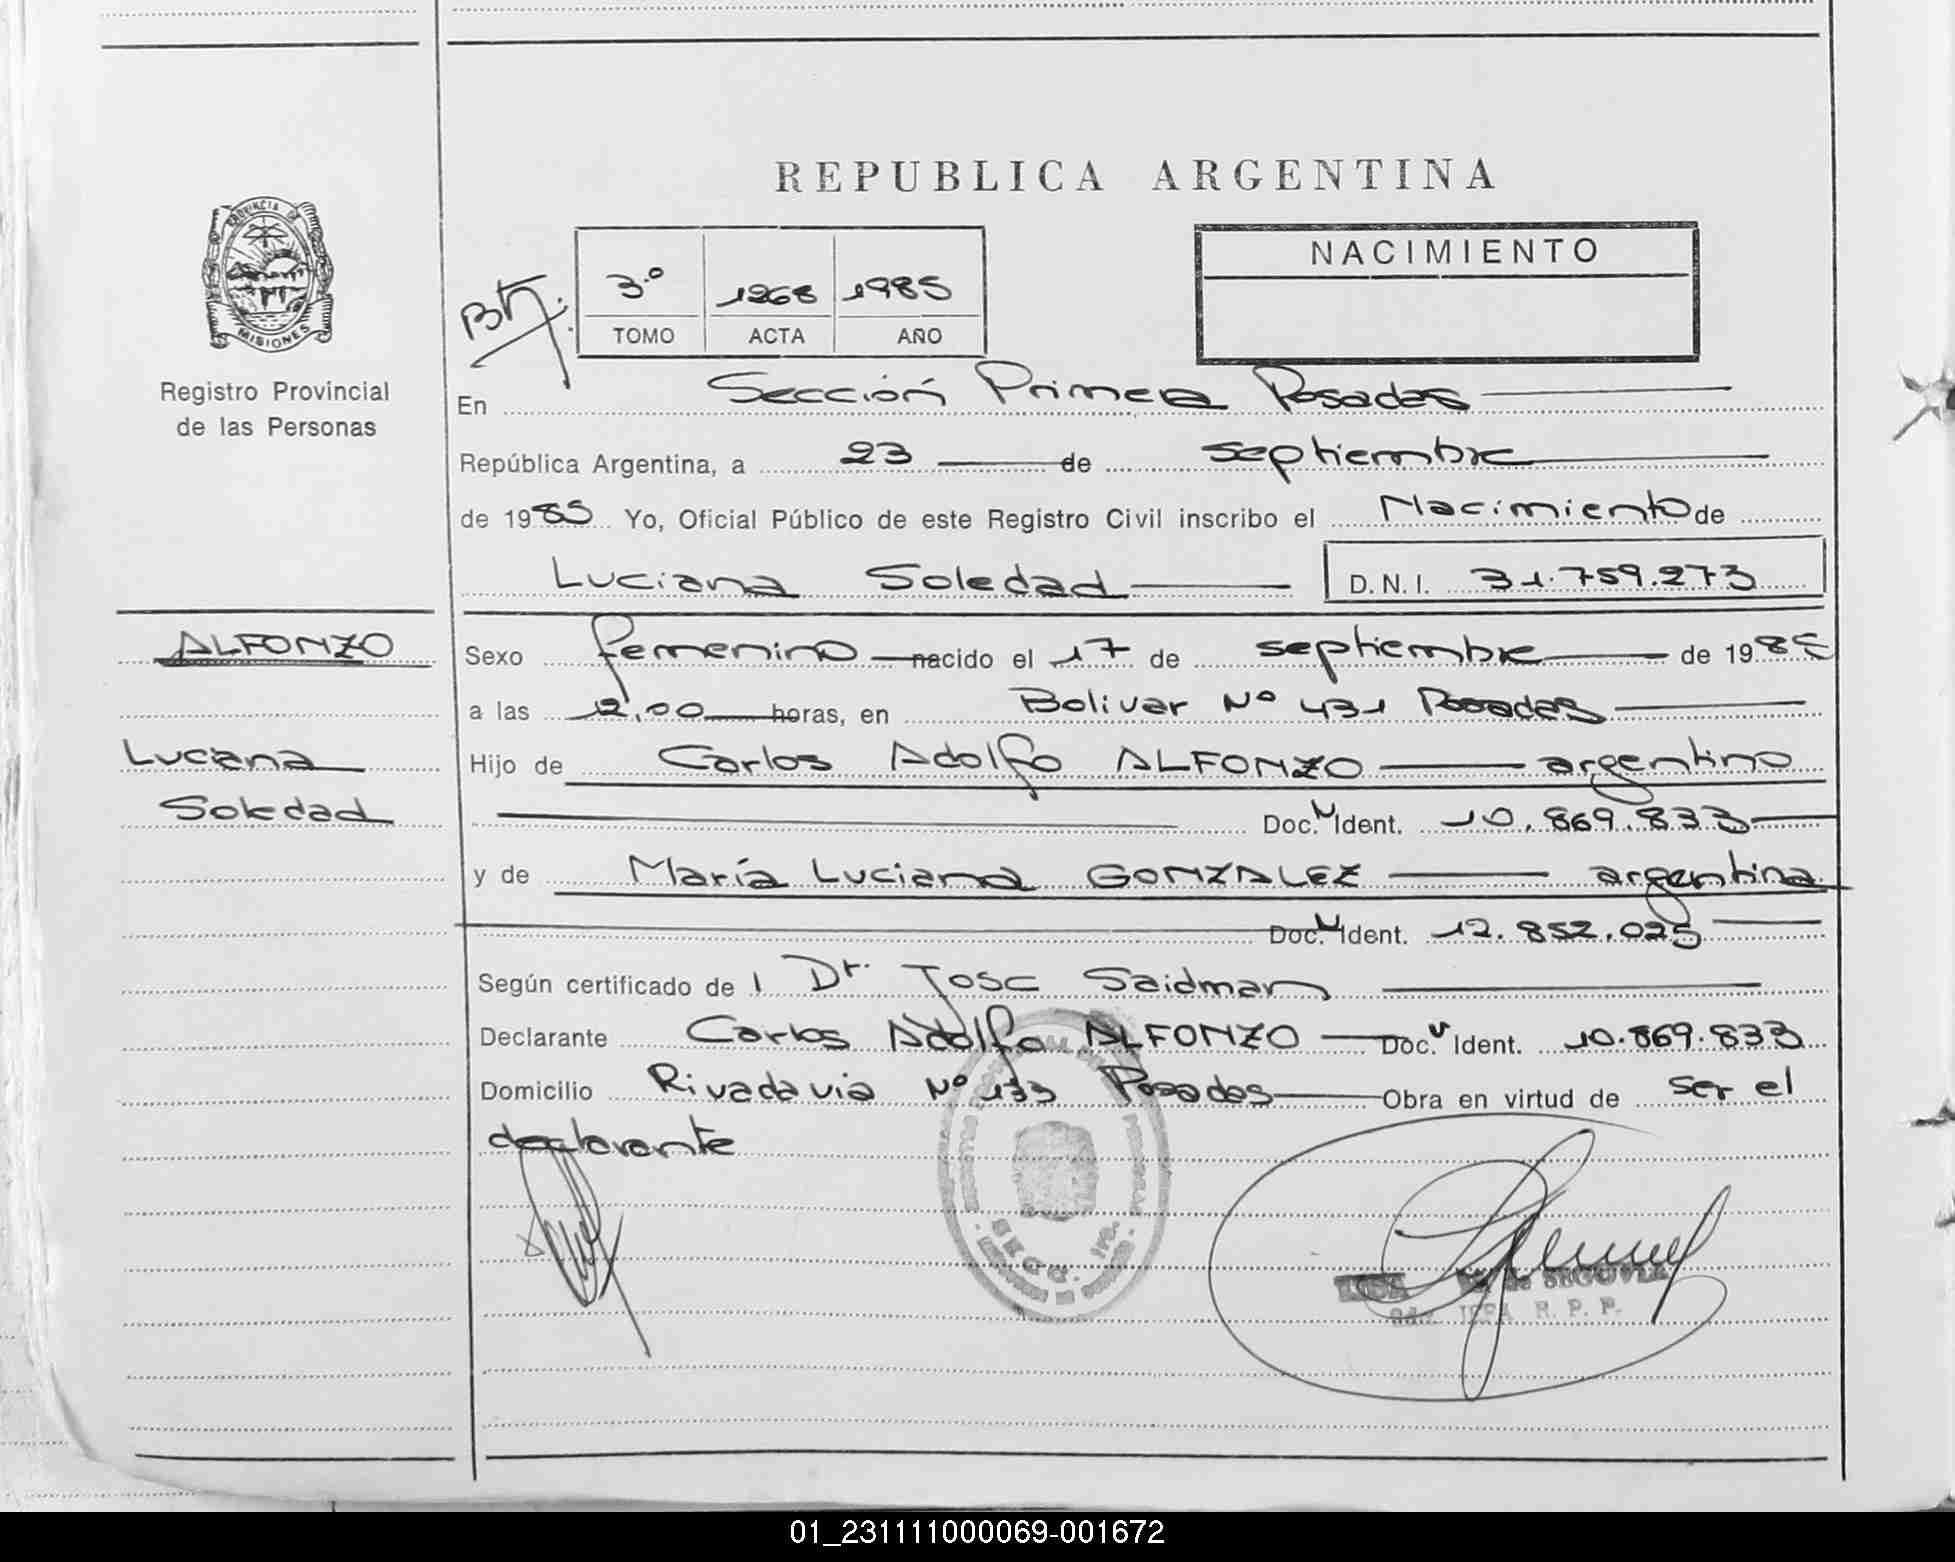 REPUBLICA ARGENTINA
PROVINCIA DE
MISIONES
Registro Provincial
de las Personas
NACIMIENTO
3.º 1268 1985
TOMO ACTA AÑO
En Sección Primera Posadas
República Argentina, a 23 de septiembre
de 1985 Yo, Oficial Público de este Registro Civil inscribo el Nacimiento de
Luciana Soledad D.N.I. 31.759.273
ALFONZO
Luciana
Soledad
Sexo femenino nacido el 17 de septiembre de 1985
a las 12,00 horas, en Bolivar Nº 431 Posadas
Hijo de Carlos Adolfo ALFONZO argentino
Doc. Ident. 10.869.833
y de María Luciana GONZALEZ argentina
Doc. Ident. 12.852.025
Según certificado de l Dr. José Saidman
Declarante Carlos Adolfo ALFONZO Doc. Ident. 10.869.833
Domicilio Rivadavia Nº 133 Posadas Obra en virtud de ser el
declarante
SECC. 1ra.
de SEGOVIA
R. P. P.
01_231111000069-001672